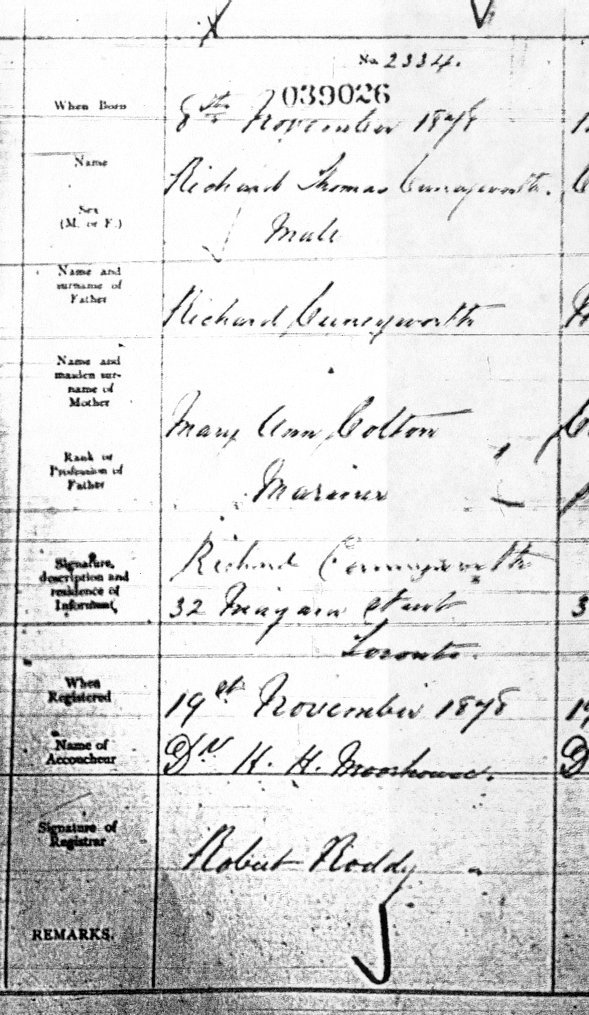 No. 2334.
039026
When Born
8th November 1878
Name
Richard Thomas
Sex
(M. or F.)
Male
Name and
surname of
Father
Richard
Name and
maiden sur-
name of
Mother
Mary Ann Colton
Rank or
Profession of
Father
Mariner
Signature,
description and
residence of
Informant,
Richard
32 Niagara Street
Toronto.
When
Registered
19th November 1878
Name of
Accoucheur
Dr H. H. Moorhouse.
Signature of
Registrar
Robert Roddy
REMARKS.